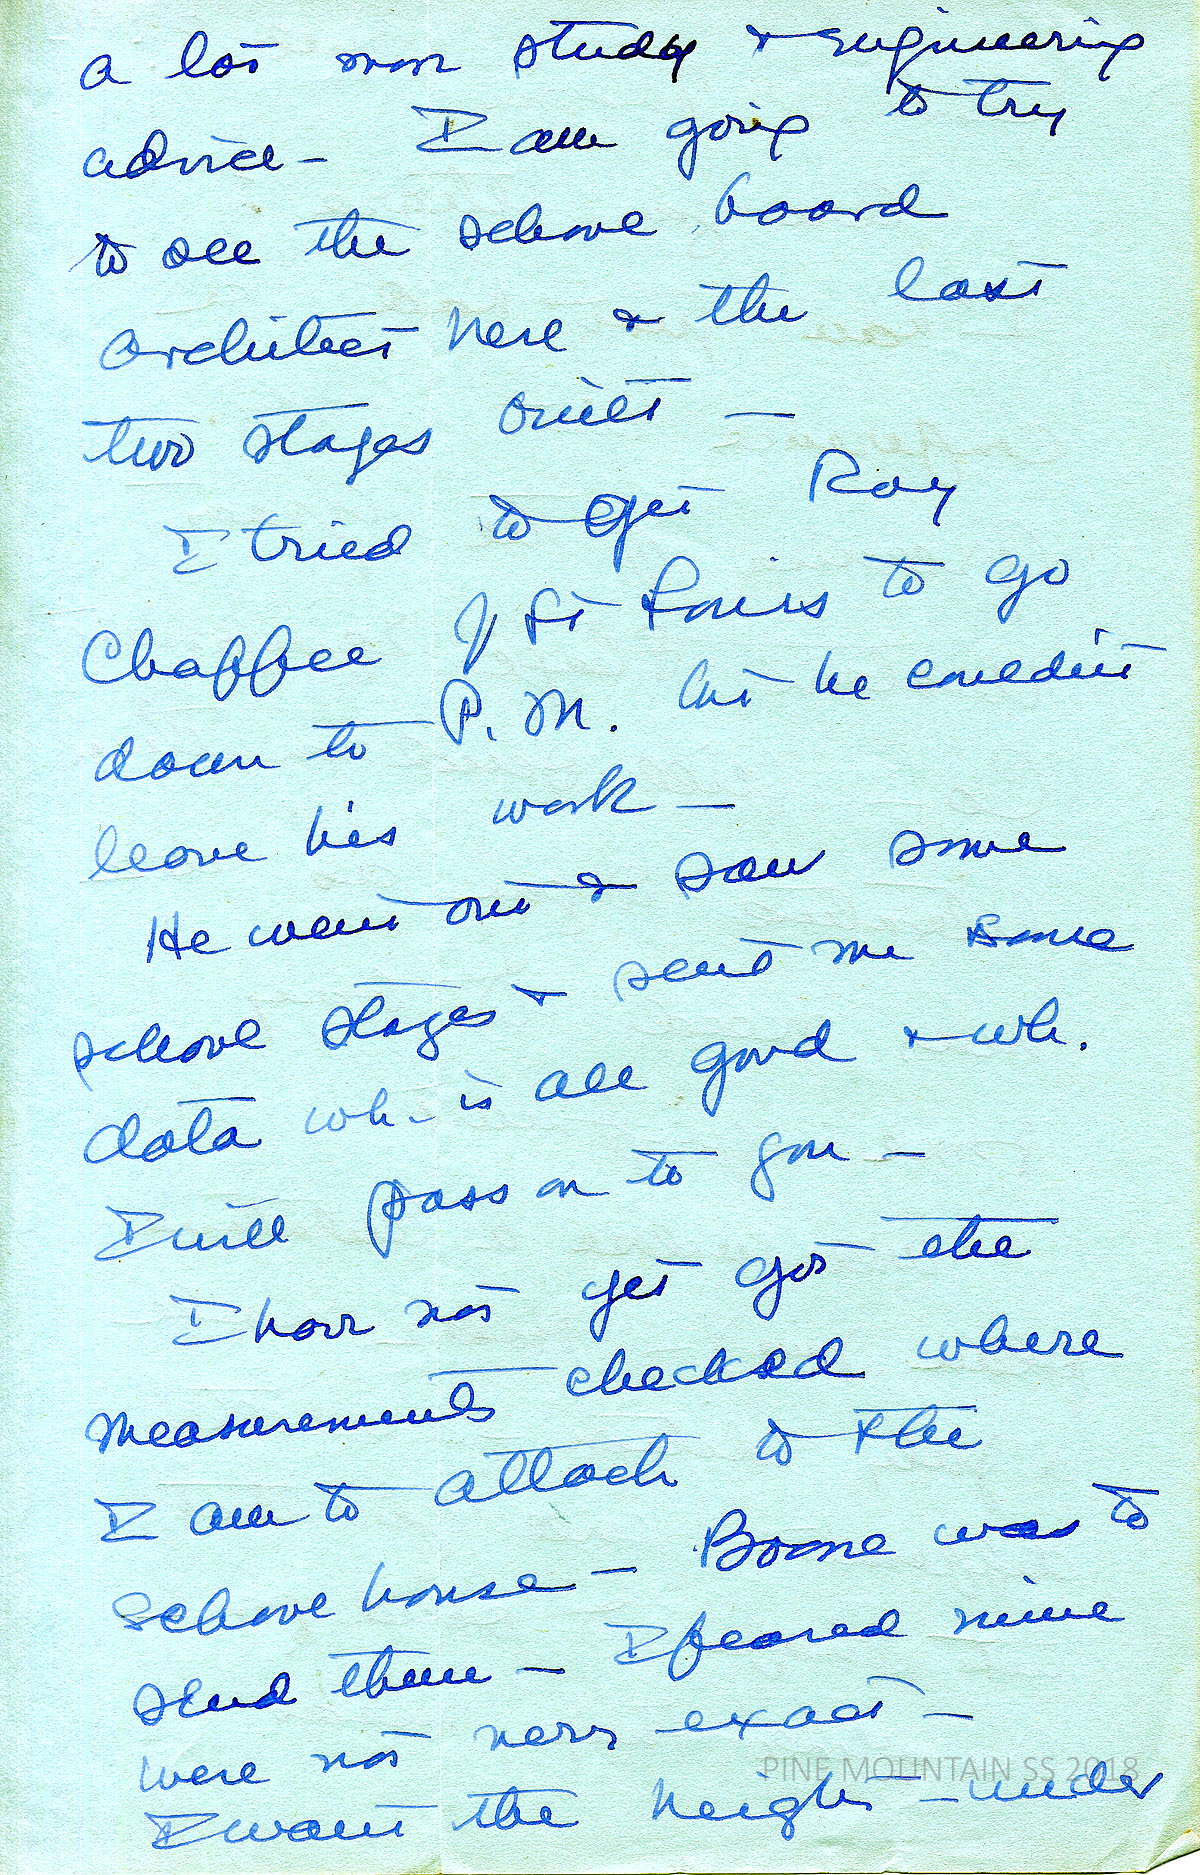 a lot more study & engineering
advice - I am going to try
to see the school board
architect here & the last
two stages built —
I tried to get Roy
Chaffee of St Louis to go
down to P. M. but he couldn't
leave his work —
He went out & saw some
school stages & sent me some
data wh. is all good & wh.
I will pass on to you —
I have not yet got the
measurements checked where
I am to attach to the
school house — Boone was to
send them — I feared mine
were not very exact —
PINE MOUNTAIN SS 2018
I want the height under